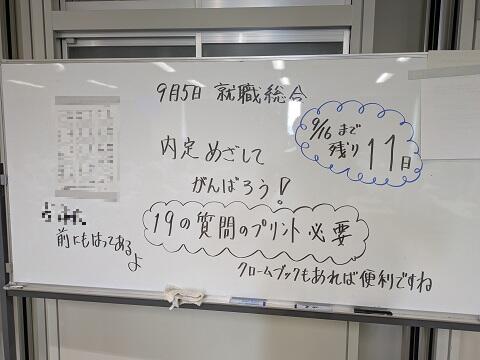 9月5日 就職総合
9/16まで
残り 11日
内定めざして
がんばろう!
19の質問のプリント必要
前にもはってある
よ
クロームブックもあれば便利ですね